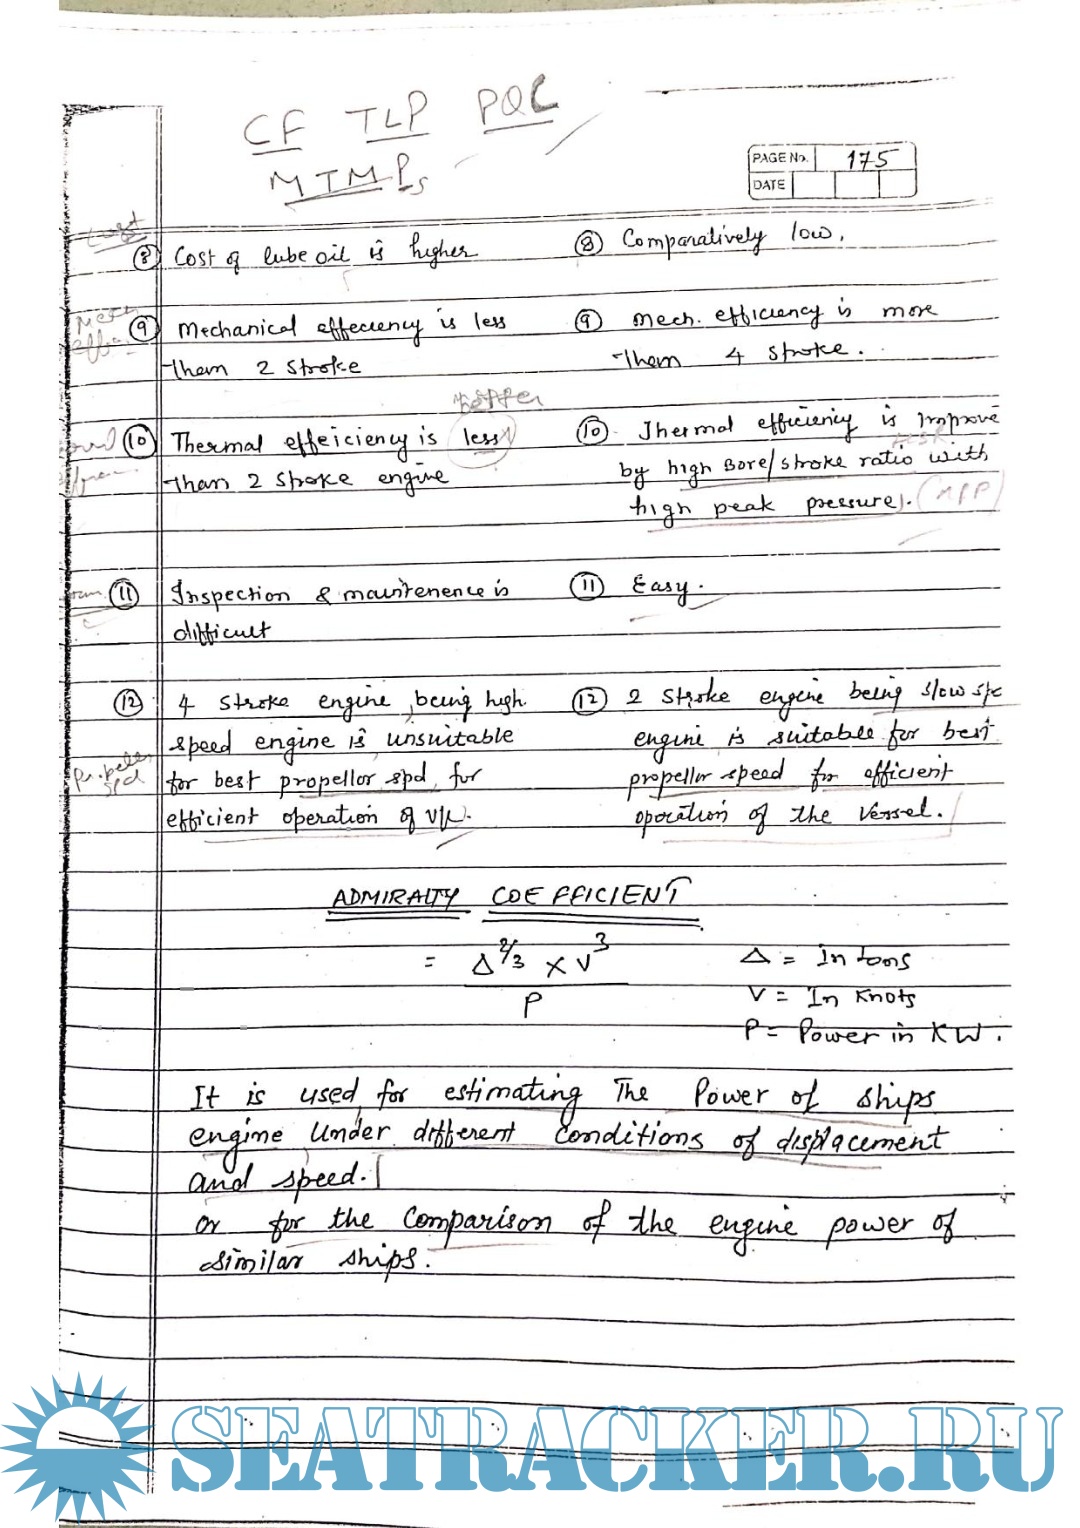 CF TLP PQC
MIMPs
PAGE No. 175
DATE
Cost
⑧ Cost of lube oil is higher
⑧ Comparatively low.
Mech
⑨ Mechanical effeciency is less
than 2 stroke
⑨ Mech. efficiency is more
than 4 stroke.
better
⑩ Thermal effeiciency is less
than 2 stroke engine
⑩ Thermal efficiency is improve
by high Bore/stroke ratio with
high peak pressure).
⑪ Inspection & maintenence is
difficult
⑪ Easy.
⑫ 4 stroke engine being high
speed engine is unsuitable
for best propellor spd for
efficient operation of v/l.
Propeller
spd
⑫ 2 stroke engine being slow spe
engine is suitable for best
propellor speed for efficient
operation of the vessel.
ADMIRALTY COEFFICIENT
= Δ^2/3 × V^3
P
Δ = In tons
V = In Knots
P = Power in KW.
It is used for estimating The Power of ships
engine Under different Conditions of displacement
and speed.
or for the Comparison of the engine power of
similar ships.
SEATRACKER.RU